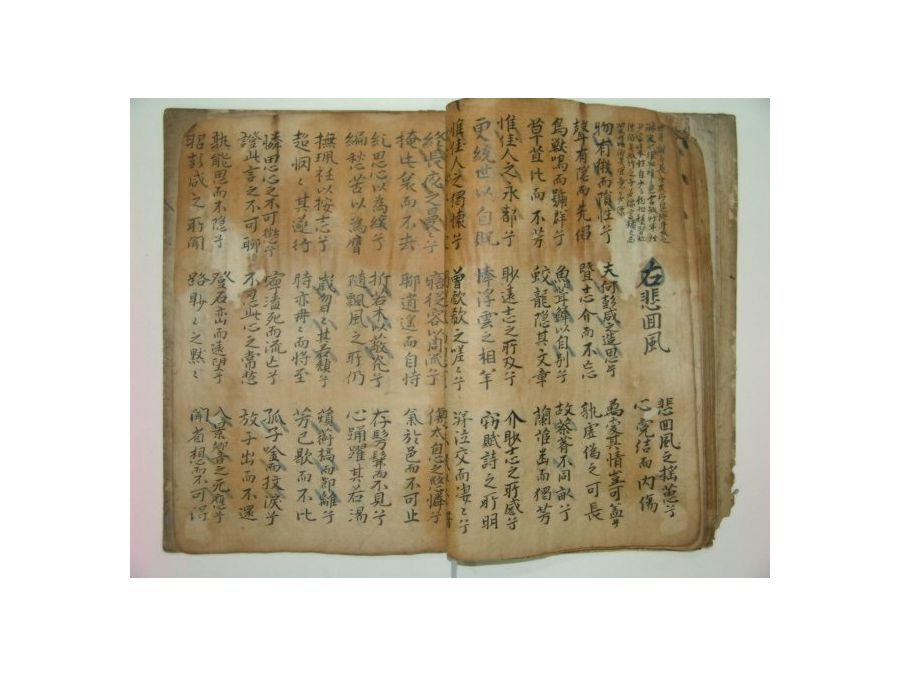 右悲囬風
悲囬風之搖蕙兮
心冤結而内傷
物有微而隕性兮
聲有隱而先倡
夫何彭咸之造思兮
曁志介而不忘
萬變其情豈可盖兮
孰虛僞之可長
鳥獸鳴而號群兮
草苴比而不芳
魚葺鱗以自別兮
蛟龍隱其文章
故荼薺不同畝兮
蘭茝幽而獨芳
惟佳人之永都兮
更統世以自貺
眇遠志之所及兮
憐浮雲之相羊
介眇志之所惑兮
竊賦詩之所明
惟佳人之獨懷兮
曾歔欷之嗟〻兮
涕泣交而凄〻兮
終長夜之曼〻兮
掩此哀而不去
寤從容以周流兮
聊逍遙而自恃
傷太息之愍憐兮
氣於邑而不可止
糺思心以為纕兮
編愁苦以為膺
折若木以蔽光兮
隨飄風之所仍
存髣髴而不見兮
心踊躍其若湯
撫珮衽以按志兮
超惘〻其遂行
歲曶〻其若頹兮
時亦冉〻而將至
薠蘅槁而節離兮
芳已歇而不比
憐思心之不可懲兮
證此言之不可聊
寧溘死而流亡兮
不忍此心之常愁
孤子唫而抆淚兮
放子出而不還
孰能思而不隱兮
昭彭咸之所聞
登石巒而遠望兮
路眇〻之黙〻
入景響之无應兮
聞省想而不可得